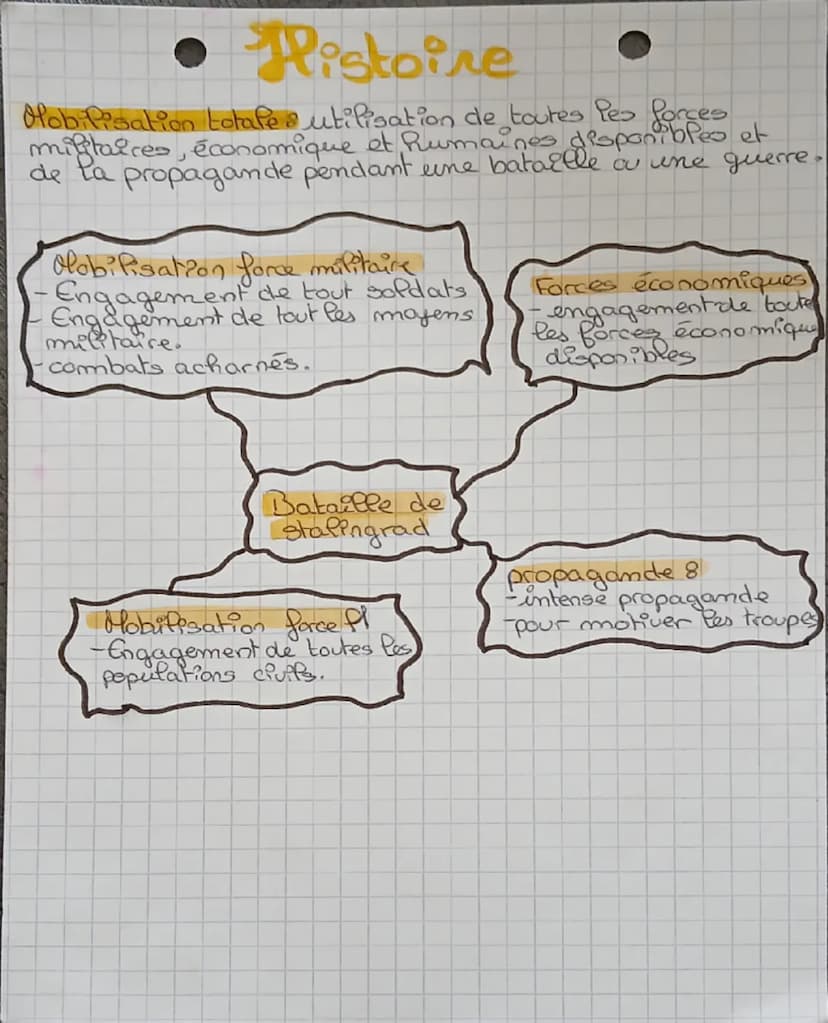 Histoire
Mobilisation totale : utilisation de toutes les forces
militaires, économique et humaines disponibles et
de la propagande pendant une bataille ou une guerre.
Mobilisation force militaire
- Engagement de tout soldats
- Engagement de tout les moyens
militaire.
- combats acharnés.
Forces économiques
- engagement de toute
les forces économique
disponibles
Bataille de
stalingrad
Mobilisation force
- Engagement de toutes les
populations civils.
propagande :
- intense propagande
- pour motiver les troupes